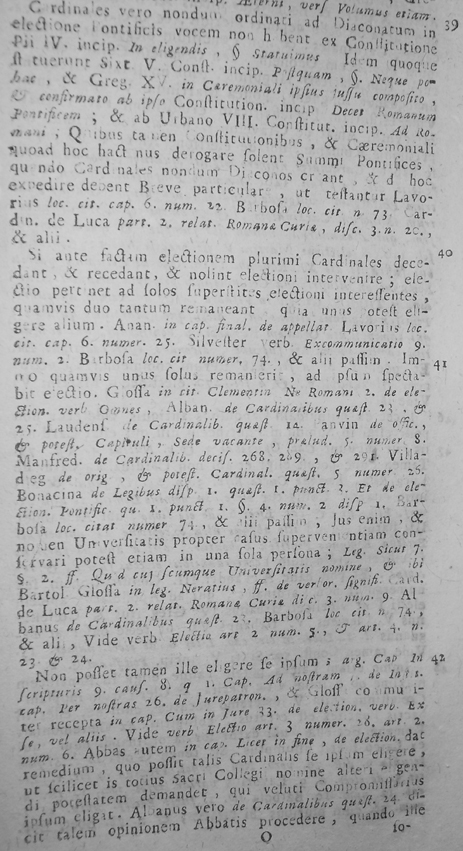 Cardinales vero nondum ordinati ad Diaconatum in 39
electione Pontificis vocem non h bent ex Constitutione
Pii IV. incip. In eligendis, § Statuimus Idem quoque
st tuerunt Sixt V. Const. incip. Postquam, §. Neque po-
hac, & Greg. XV. in Cæremoniali ipsius jussu composito,
& confirmato ab ipso Constitution. incip Decet Romanum
Pontificem; & ab Urbano VIII. Constitut. incip. Ad Ro-
mani, Quibus tamen Constitutionibus, & Cæremoniali
quoad hoc hact nus derogare solent Summi Pontifices,
qu ndo Card nales nondum Di conos cr ant, & d hoc
expedire debent Breve particular, ut testantur Lavo-
rius loc. cit. cap. 6. num. 22. Barbosa loc. cit n 73. Car-
din. de Luca part. 2. relat. Romanæ Curiæ, disc. 3. n. 20.,
& alii.
Si ante factam electionem plurimi Cardinales dece- 40
dant, & recedant, & nolint electioni intervenire; ele-
ctio pert net ad solos superstites electioni interessentes,
quamvis duo tantum remaneant quia unus potest eli-
gere alium. Anan. in cap. final. de appellat Lavorius loc.
cit. cap. 6. numer. 25. Silvester verb Excommunicatio 9.
num. 2. Barbosa loc. cit numer. 74., & alii passim. Im- 41
mo quamvis unus solus remanerit, ad psum specta
bit electio. Glossa in cit Clementin Ne Romani 2. de ele-
ction. verb Omnes, Alban. de Cardinalibus quæst. 23. &
25. Laudens de Cardinalib. quæst 12. Panvin de offic.,
& potest. Capituli, Sede vacante, prælud. 5. numer 8.
Manfred. de Cardinalib. decis. 268. 289., & 291. Villa-
dieg de orig, & potest. Cardinal. quæst. 5 numer 26.
Bonacina de Legibus disp. 1. quæst. 1. punct 2. Et de ele-
ction. Pontific. qu. 1. punct. 1. §. 4. num. 2 disp 1. Bar-
bosa loc. citat numer 74, & alii passim, Jus enim, &
nomen Universitatis propter casus supervenientium con-
servari potest etiam in una sola persona; Leg. Sicut 7.
§. 2. ff. Quod cujuscumque Universitatis nomine, & ibi
Bartol Glossa in leg. Neratius, ff. de verbor. signifi. Card.
de Luca part. 2. relat. Romanæ Curiæ di c. 3. num. 9. Al
banus de Cardinalibus quæst. 23. Barbosa loc cit n 74.,
& alii, Vide verb Electio art 2 num. 5., & art. 4. n.
23 & 24.
Non posset tamen ille el gere se ipsum arg. Cap In 42
scripturis 9. caus. 8. q 1. Cap. Ad nostram de
cap. Per nostras 26. de Jurepatron., & Gloss commu i-
ter recepta in cap. Cum in Jure 33. de election. verb. Ex
se, vel aliis. Vide verb Electio art. 3 numer. 28. art. 2.
num. 6. Abbas autem in cap. Licet in fine, de election. dat
remedium, quo possit talis Cardinalis se ipsum eligere,
ut scilicet is totius Sacri Collegi nomine alteri gen-
di potestatem demandet, qui veluti Compromissarius
ipsum eligat. Albanus vero de Cardinalibus quæst. 24. di-
cit talem opinionem Abbatis procedere, quando ille
O so-